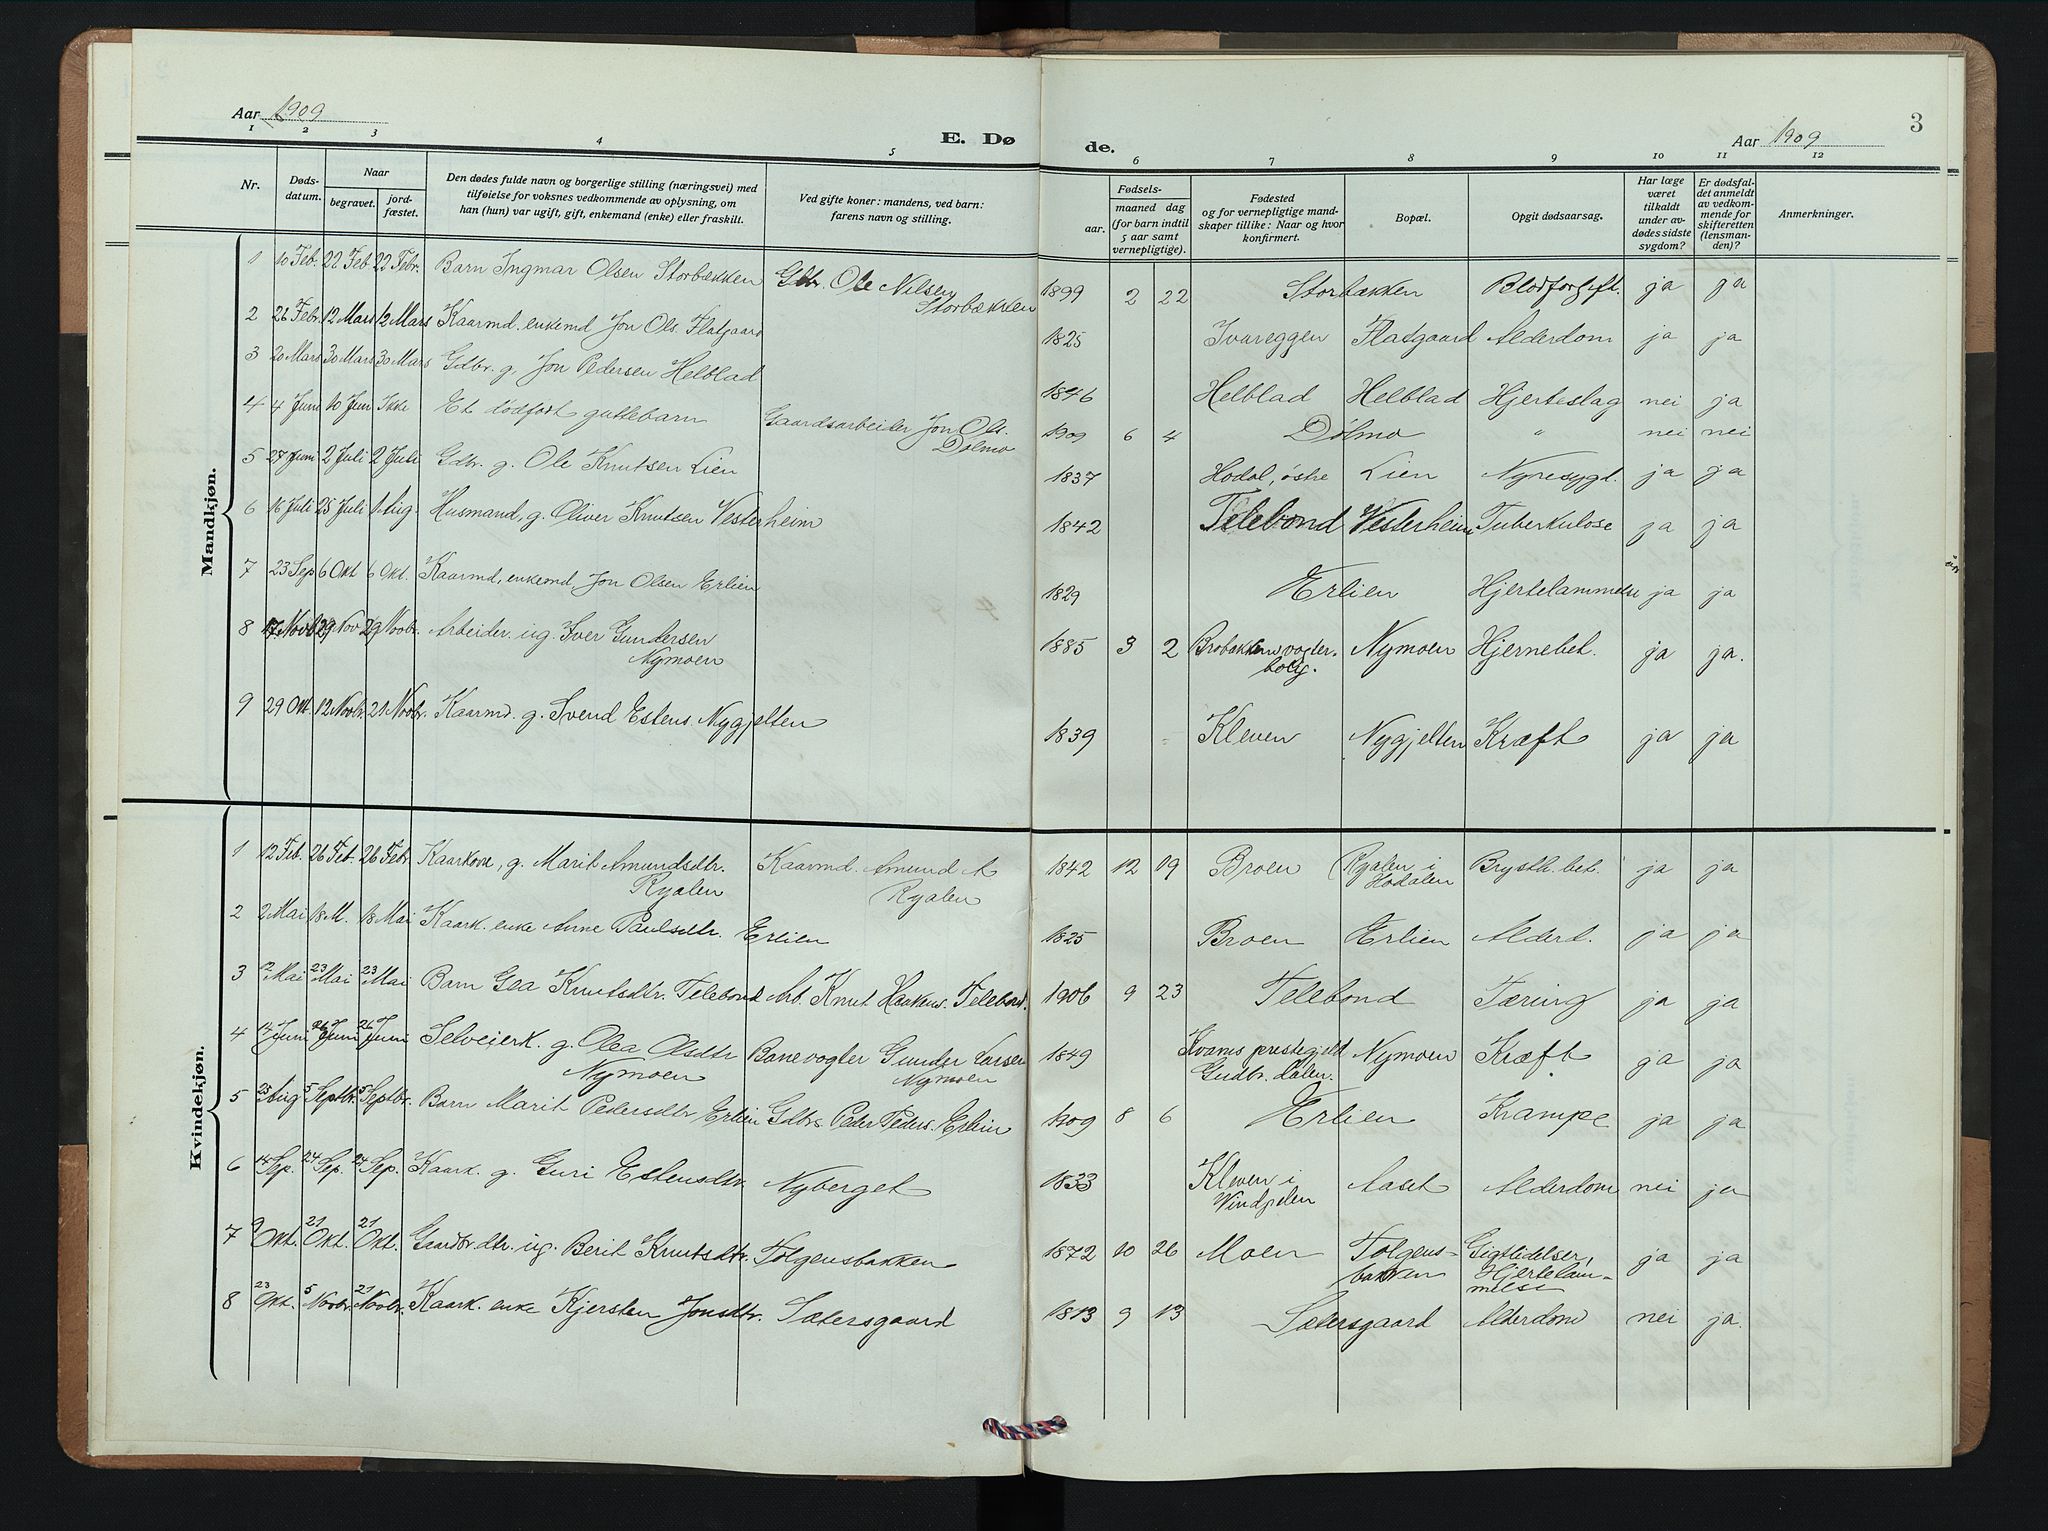 Aar 1909
E. Dø
1 2 3 4 5
Nr.
Døds-
datum.
Naar
begravet.
jord-
fæstet.
Den dødes fulde navn og borgerlige stilling (næringsvei) med
tilføielse for voksnes vedkommende av oplysning, om
han (hun) var ugift, gift, enkemand (enke) eller fraskilt.
Ved gifte koner: mandens, ved barn:
farens navn og stilling.
Mandkjøn.
1 10 Feb. 22 Feb 22 Febr. Barn Ingmar Olsen Storbækken Gdbr. Ole Nilsen
Storbækken
2 26 Febr. 12 Mars 12 Mars Kaarmd. enkemd Jon Ols. Flatgaard
3 20 Mars 30 Mars 30 Mars Gdbr. g. Jon Pedersen Helblad
4 4 Juni 10 Jun Ikke Et dødfött guttebarn Gaardsarbeider Jon Ols.
Dölmo
5 27 Juni 2 Juli 2 Juli Gdbr. g. Ole Knutsen Lien
6 16 Juli 25 Juli 1 Aug. Husmand, g. Oliver Knutsen Vesterheim
7 23 Sep 6 Okt 6 Okt. Kaarmd, enkemd Jon Olsen Erlien
8 17 Novb 29 Nov 29 Novbr. Arbeider ug. Iver Gundersen
Nymoen
9 29 Okt. 12 Novbr. 21 Novbr. Kaarmd. g. Svend Estens Nygjelten
Kvindekjøn.
1 12 Feb. 26 Feb. 26 Febr. Kaarkone, g. Marit Amundsdtr. Kaarmd. Amund A
Ryalen Ryalen
2 2 Mai 18 M. 18 Mai Kaark. enke Anne Paulsdtr. Erlien
3 12 Mai 23 Mai 23 Mai Barn Gea Knutsdtr. Telebond Arb. Knut Haakens. Telebond.
4 17 Juni 26 Juni 26 Juni Selveierk. g. Olea Olsdtr Banevogter Gunder Larsen
Nymoen Nymoen
5 23 Aug 5 Septbr. 5 Septbr. Barn Marit Pedersdtr Erlien Gdbrs Peder Peders. Erlien
6 14 Sep. 24 Sep. 24 Sep. Kaark. g. Guri Estensdtr. Nyberget
7 9 Okt. 21 Okt. 21 Okt. Gaardbr.dtr. ug. Berit Knutsdtr. Tolgensbakken
8 23 Okt. 5 Novbr. 21 Novbr. Kaark. enke Kjersten Jonsdtr. Sætersgaard
de.
Aar 1909
3
6 7 8 9 10 11 12
Fødsels-
aar.
maaned dag
(for barn indtil
5 aar samt
vernepligtige).
Fødested
og for vernepligtige mand-
skaper tillike: Naar og hvor
konfirmert.
Bopæl.
Opgit dødsaarsag.
Har læge
været
tilkaldt
under av-
dødes sidste
sygdom?
Er dødsfal-
det anmeldt
av vedkom-
mende for
skifteretten
(lensman-
den)?
Anmerkninger.
1899 2 22 Storbækken Blodforgift. ja ja
1825 Ivareggen Flatgaard Alderdom ja ja
1846 Helblad Helblad Hjerteslag nei ja
1909 6 4 Dølmo " nei nei
1837 Hodal, østre Lien Nyresygd. ja ja
1842 Telebond Vesterheim Tuberkulose ja ja
1829 Erlien Hjertelammelse ja ja
1885 3 2 Brobakken vogter- Nymoen Hjernebet. ja ja.
bolig.
1839 Kleven Nygjelten Kræft ja ja
1842 12 19 Broen Ryalen i Brysth. bet. ja ja
Hodalen
1825 Broen Erlien Alderd. ja ja
1906 9 23 Telebond Tæring ja ja
1849 Kvams prestegjeld Nymoen Kræft ja ja
Gudbr. dalen.
1909 8 6 Erlien Krampe ja ja
1833 Kleven i Aaset Alderdom nei ja
1872 10 26 Moen Tolgens- Gigtlidelser, ja ja
bakken Hjertelam-
melse
1813 9 13 Sætersgaard Alderdom nei ja.